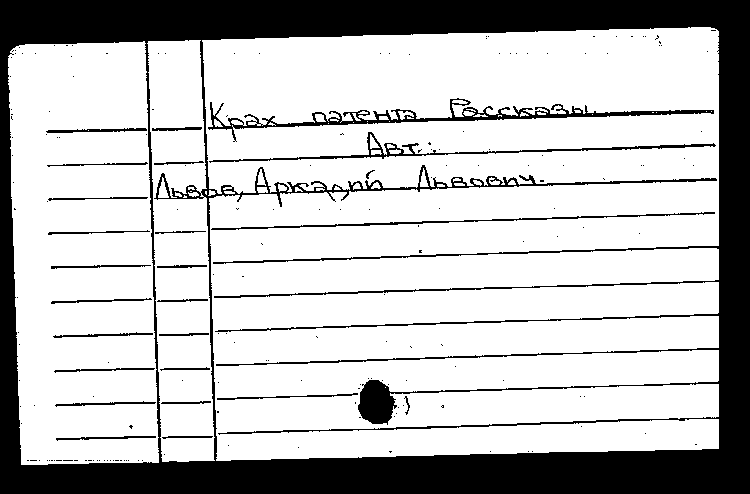 Крах патента Рассказы
Авт.:
Львов, Аркадий Львович.